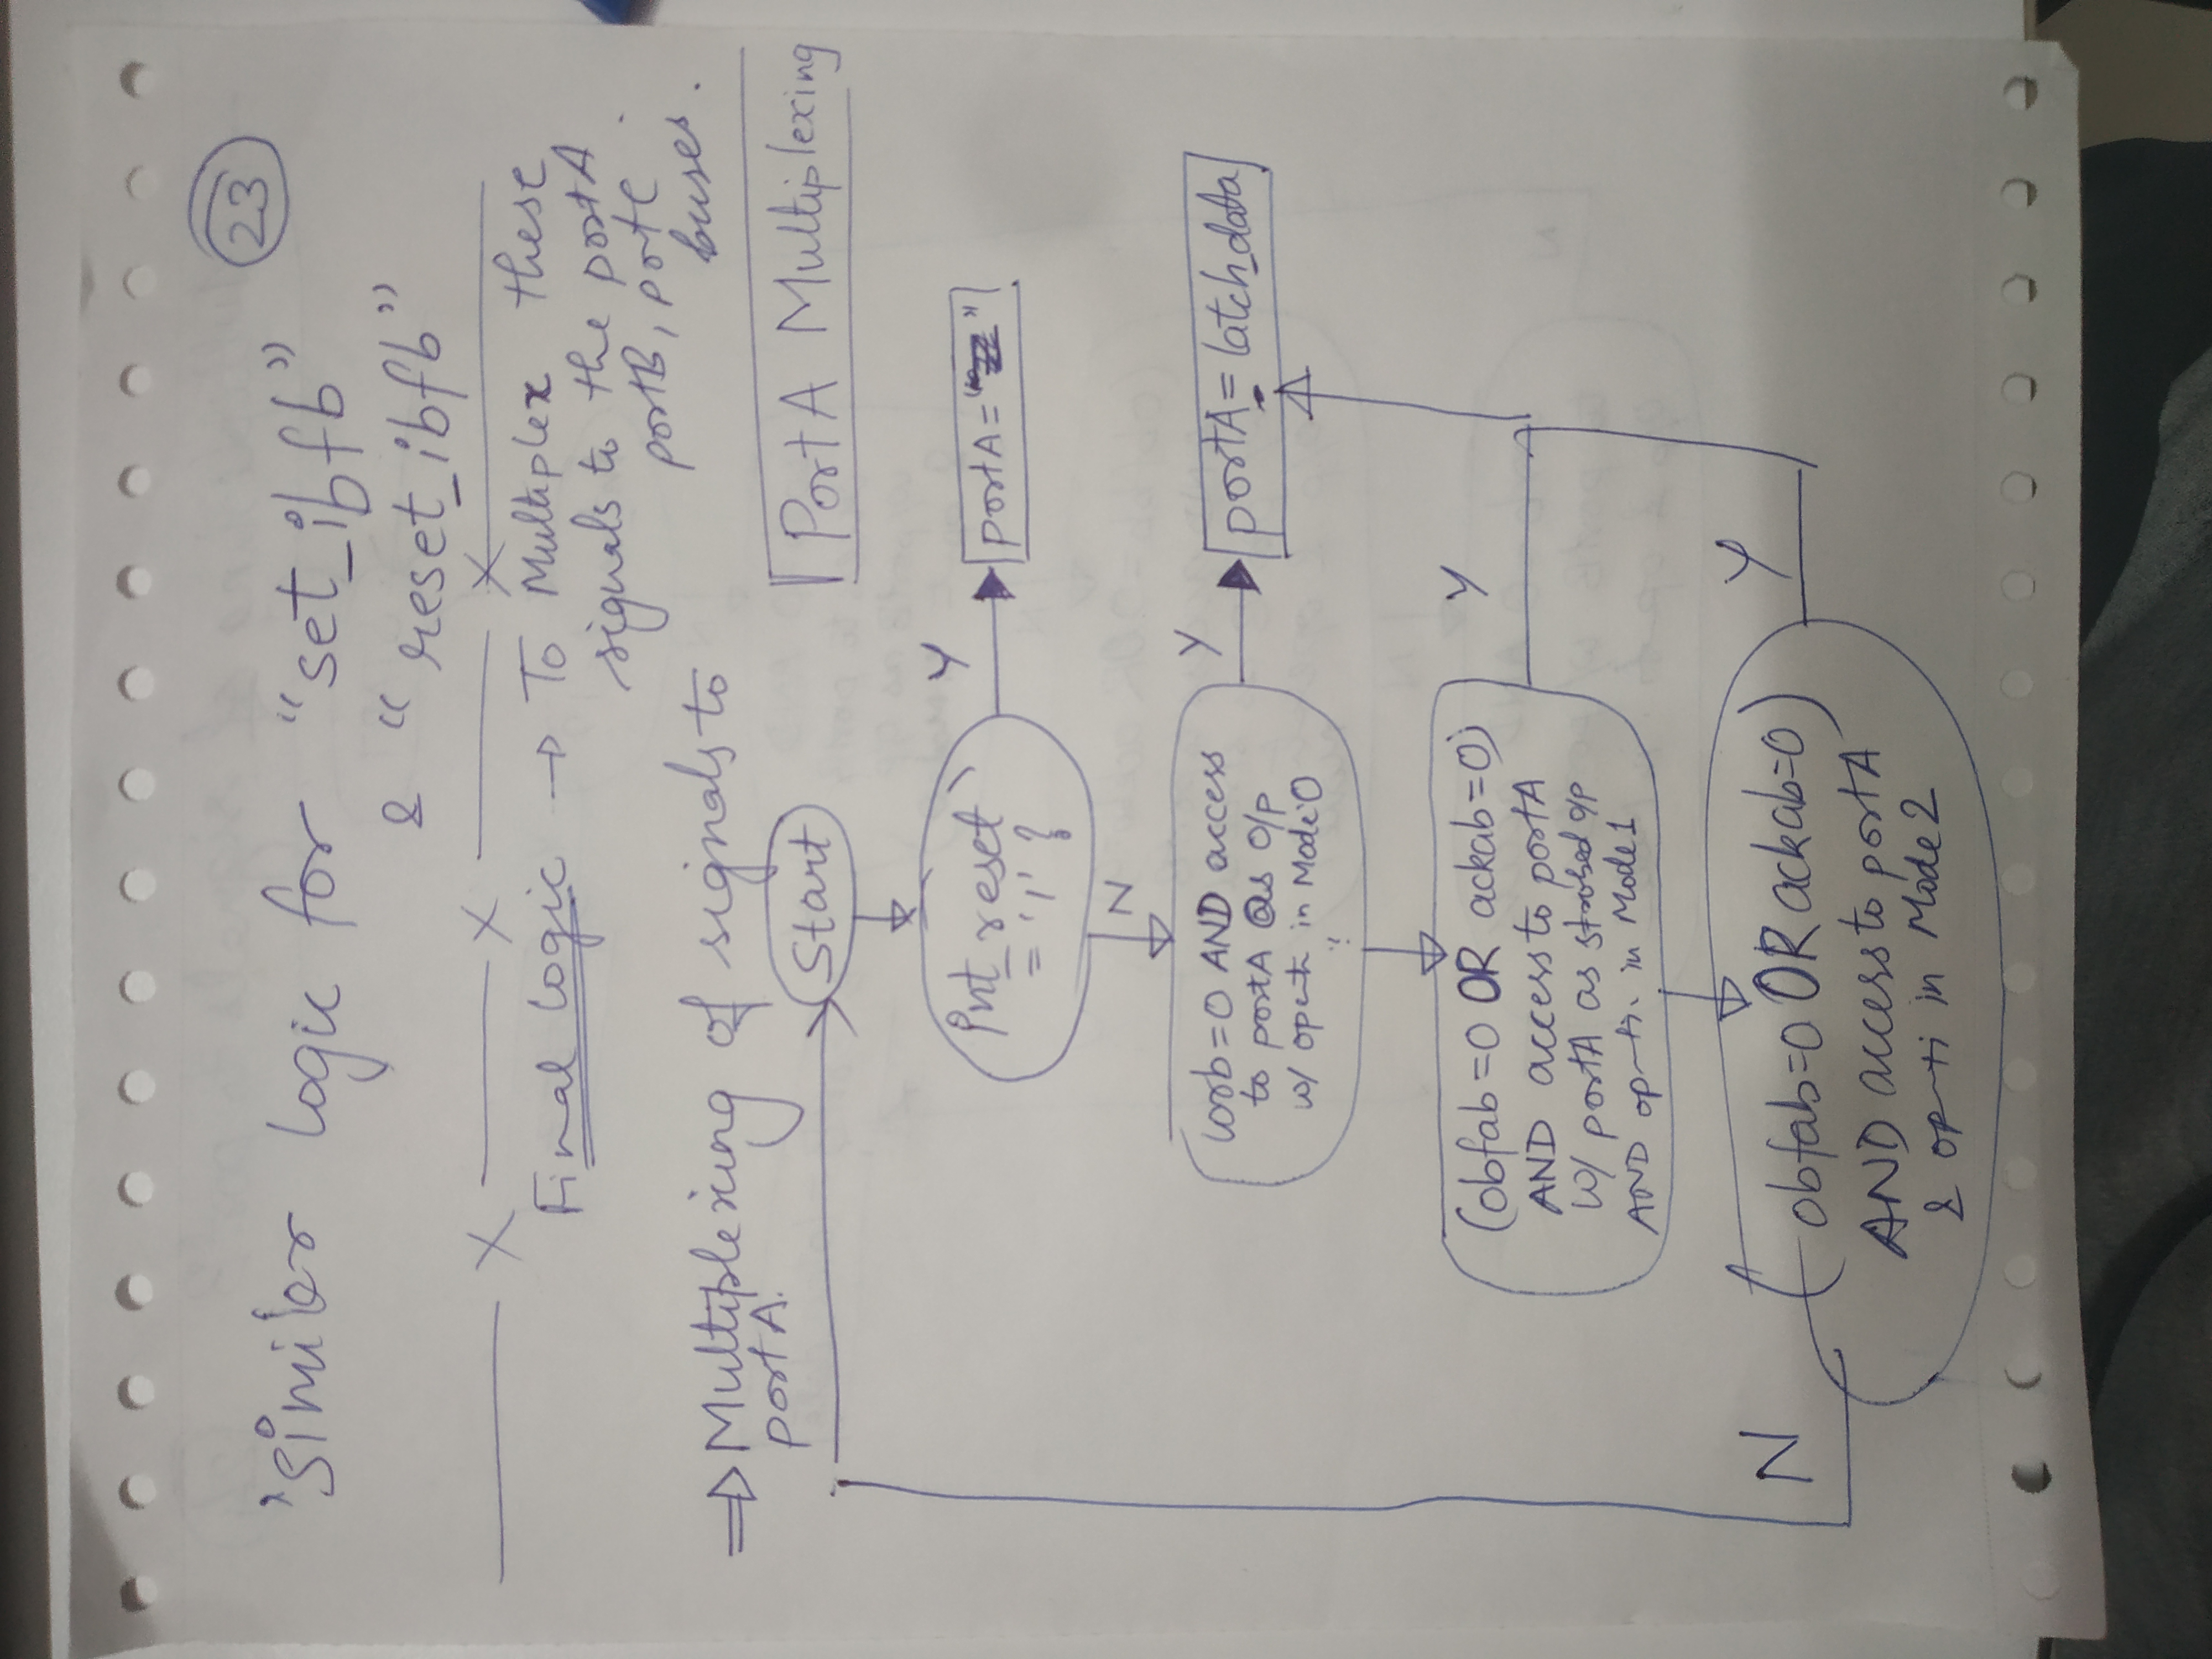 23
Similar logic for "set_ibfb"
& "reset_ibfb"
Final logic → To Multiplex these
signals to the portA
portB, portC
buses.
⇒ Multiplexing of signals to
portA.
Start
PortA Multiplexing
int_reset
= '1' ?
Y
portA = " "
N
iorb=0 AND access
to portA as O/p
w/ in Mode:0
?
Y
portA = latch_data
(obfab=0 OR ackab=0)
AND access to portA
w/ portA as strobed o/p
AND op-ti. in Mode1
Y
N
(obfab=0 OR ackab=0)
AND access to portA
& op-ti in Mode2
Y